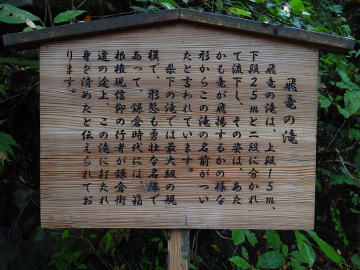 飛竜の滝
飛竜の滝は、上段15m、
下段25mと二段に分かれ
て流下し、その姿は、あた
かも竜が飛揚するかの様な
形からこの滝の名前がつい
たと言われています。
県下の滝では最大級の規
模で、形態も勇壮な名瀑で
あって、鎌倉時代には、箱
根権現信仰の行者が鎌倉街
道の途上、この滝に打たれ
身を清めたと伝えられてお
ります。